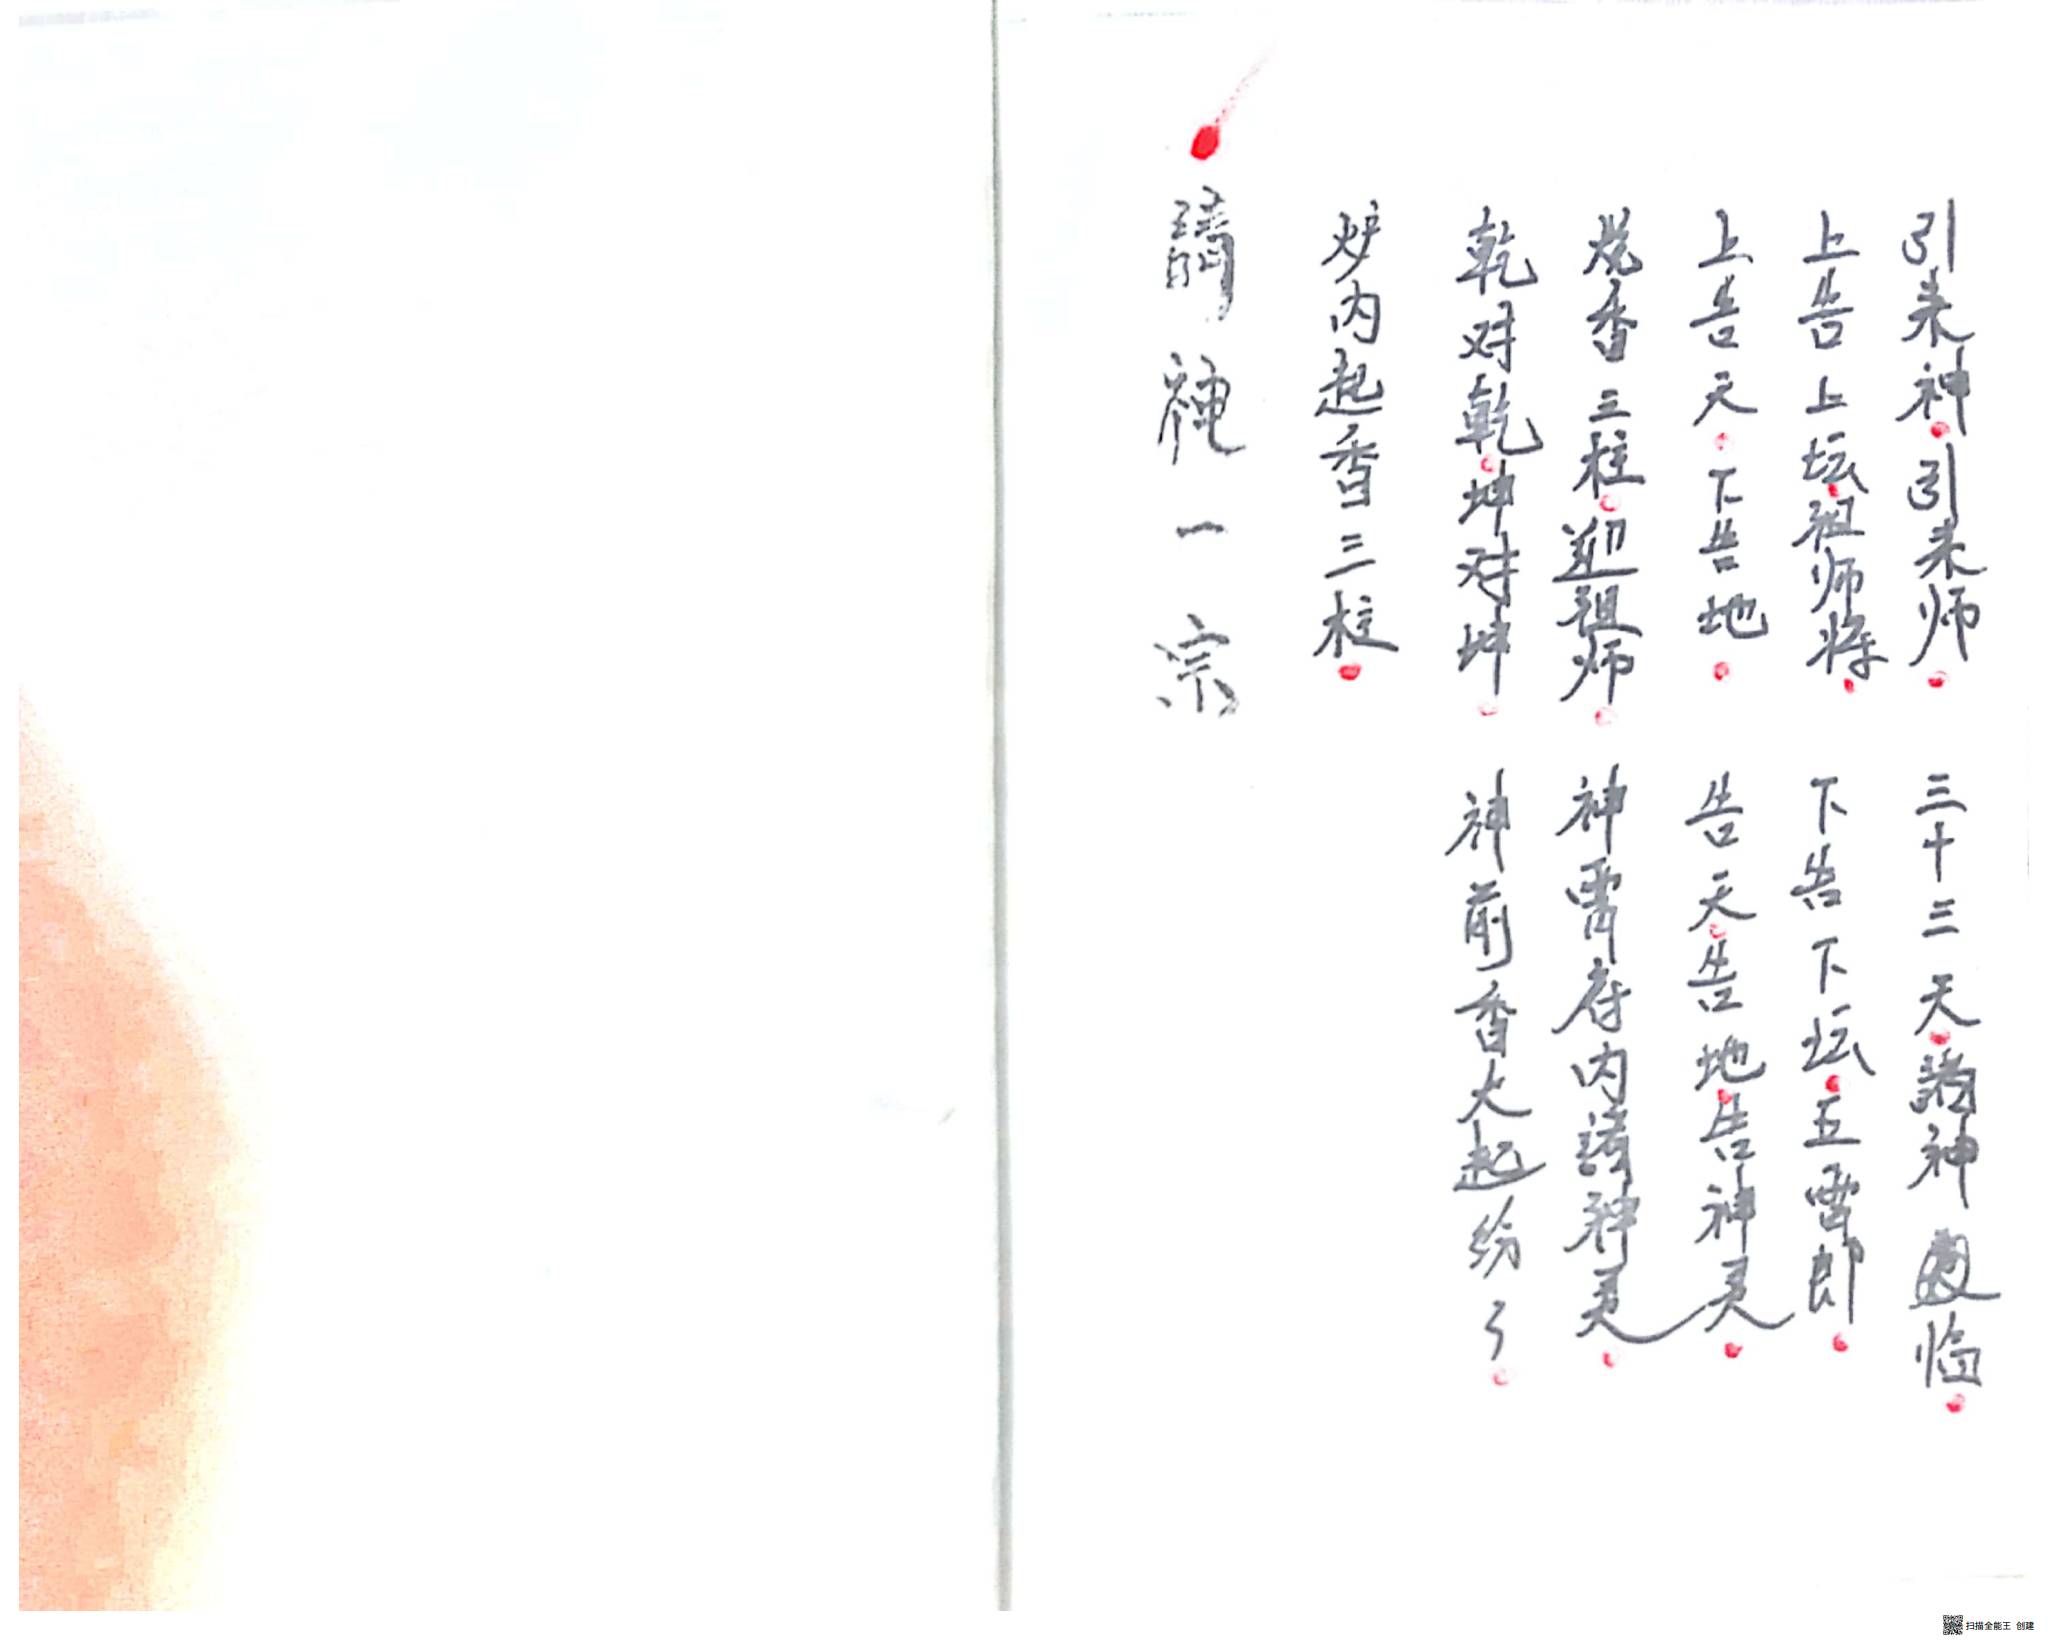 請神一宗
炉内起香三柱
乾对乾坤对坤 神前香大起纷々
烧香三柱迎祖师 神霄府内請神灵
上告天下告地 告天告地告神灵
上告上坛祖师将 下告下坛五雷郎
引来神引来师 三十三天諸神临
扫描全能王 创建